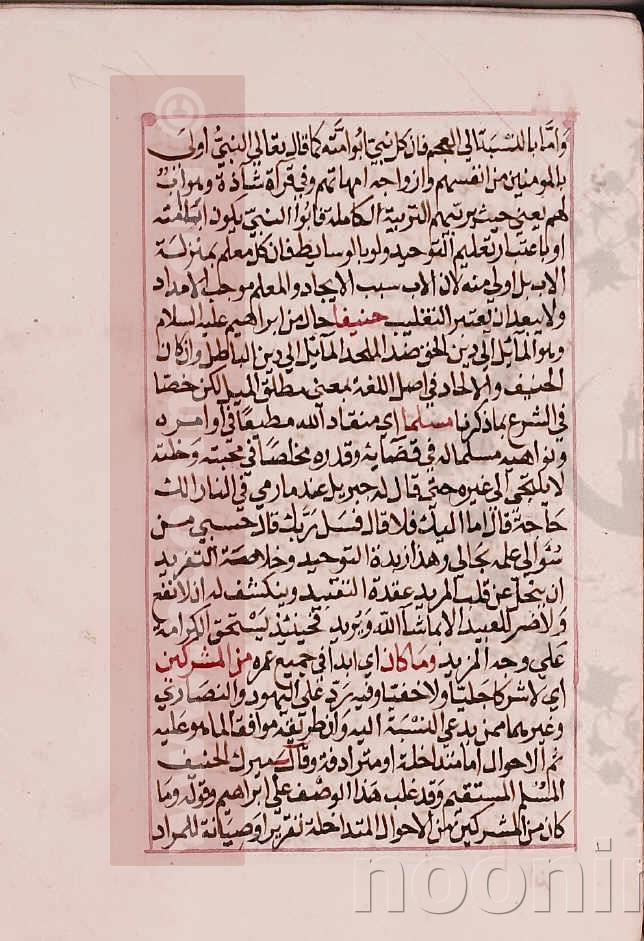 واما بالنسبة الى العجم فان كل نبي ابو امته كما قال تعالى النبي اولى
بالمومنين من انفسهم وازواجه امهاتهم وفي قراة شاذة وهو اب
لهم يعني حيث يربيهم التربية الكاملة فابو النبي يكون ابا لامته
او باعتبار تعليم التوحيد ولو بالوسايط فان كل معلم بمنزلة
الاب بل اولى منه لان الاب سبب الايجاد والمعلم موجب الامداد
ولا يبعد ان يعتبر التغليب حنيفا حال من ابراهيم عليه السلام
وهو المائل الى دين الحق ضد الملحد المائل الى دين الباطل وان كان
الحنيف والالحاد في اصل اللغة بمعنى مطلق الميل لكن خصا
في الشرع بما ذكرنا مسلما اي منقاد الله مطيعا في اوامره
ونواهيه مسلما له في قضايه وقدره مخلصا في محبته وخلته
لا يلتجي الى غيره حتى قال له جبريل عند ما رمي في النار الك
حاجة قال اما اليك فلا قال فسل ربك قال حسبي من
سوالي علمه بحالي وهذا زبدة التوحيد وخلاصة التفريد
ان ينحل عن قلب المريد عقدة التقييد وينكشف له ان لا نفع
ولا ضر للعبيد الا بما شآ الله ويريد فحينئذ يستحق الكرامة
على وجه المزيد وما كان اي ابدا في جميع عمره من المشركين
اي لا شركا جليا ولا خفيا وفيه رد على اليهود والنصارى
وغيرهما ممن يدعي النسبة اليه وان طريقه موافق لما هو عليه
ثم الاحوال اما متداخلة او مترادفة وقال ميرك الحنيف
المسلم المستقيم وقد غلب هذا الوصف على ابراهيم وقوله وما
كان من المشركين من الاحوال المتداخلة تقريرا وصيانة للمراد
noonin